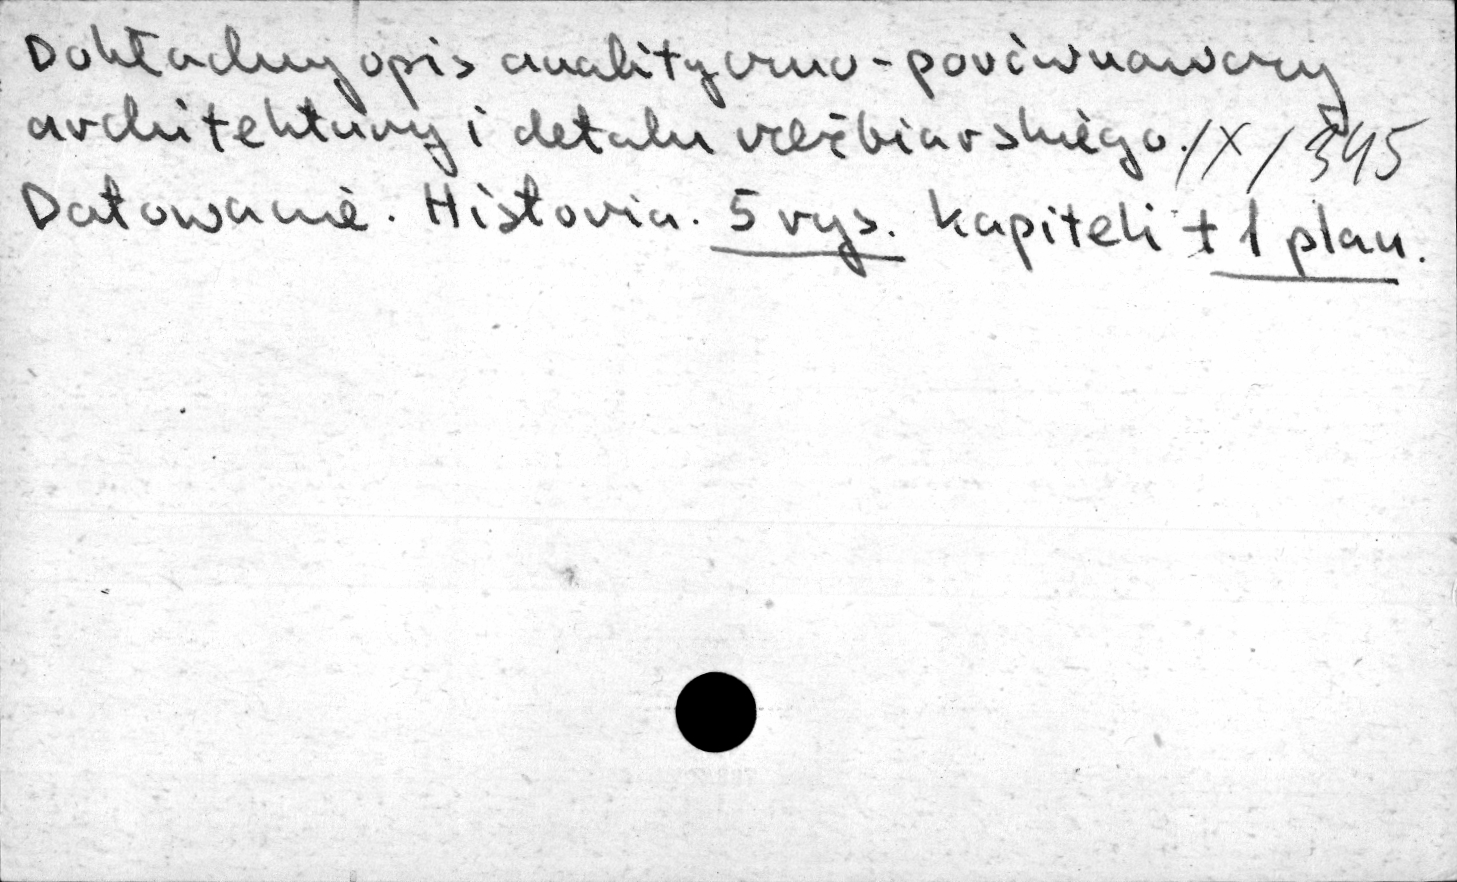 Dokładny opis analityczno-porównawczy
architektury i detalu rzeźbiarskiego. /X/345
Datowanie. Historia. 5 rys. kapiteli + 1 plan.